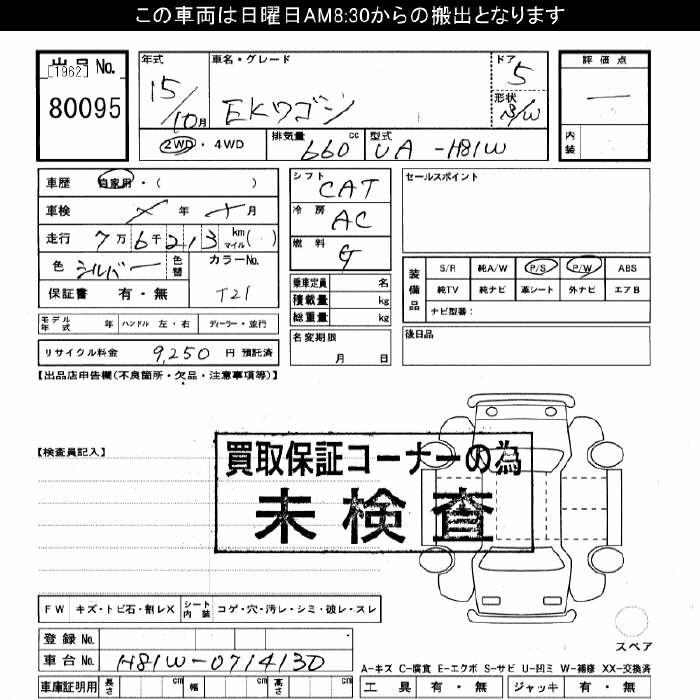 この車両は日曜日AM8:30からの搬出となります
出品 No.
[1962]
80095
年式
15/10月
車名・グレード
EKワゴン
ドア
5
形状
S/W
評価点
—
内装
2WD・4WD
排気量 660 cc
型式 UA-H81W
車歴 自家用・( )
車検 年 月
走行 7万6千213 km マイル( )
色 シルバー 色替
カラーNo.
T21
保証書 有・無
シフト CAT
冷房 AC
燃料 G
乗車定員 名
積載量 kg
総重量 kg
セールスポイント
装備品
S/R 純A/W P/S P/W ABS
純TV 純ナビ 革シート 外ナビ エアB
ナビ型番:
モデル年式 年 ハンドル 左・右 ディーラー・並行
名変期限
月 日
後日品
リサイクル料金 9,250 円 預託済
【出品店申告欄(不良箇所・欠品・注意事項等)】
【検査員記入】
買取保証コーナーの為
未検査
FW キズ・トビ石・割レX シート内装 コゲ・穴・汚レ・シミ・破レ・スレ
登録 No.
車台 No. H81W-0714130
スペア
A-キズ C-腐食 E-エクボ S-サビ U-凹ミ W-補修 XX-交換済
車庫証明用 長さ cm 幅 cm 高さ cm
工具 有・無 ジャッキ 有・無